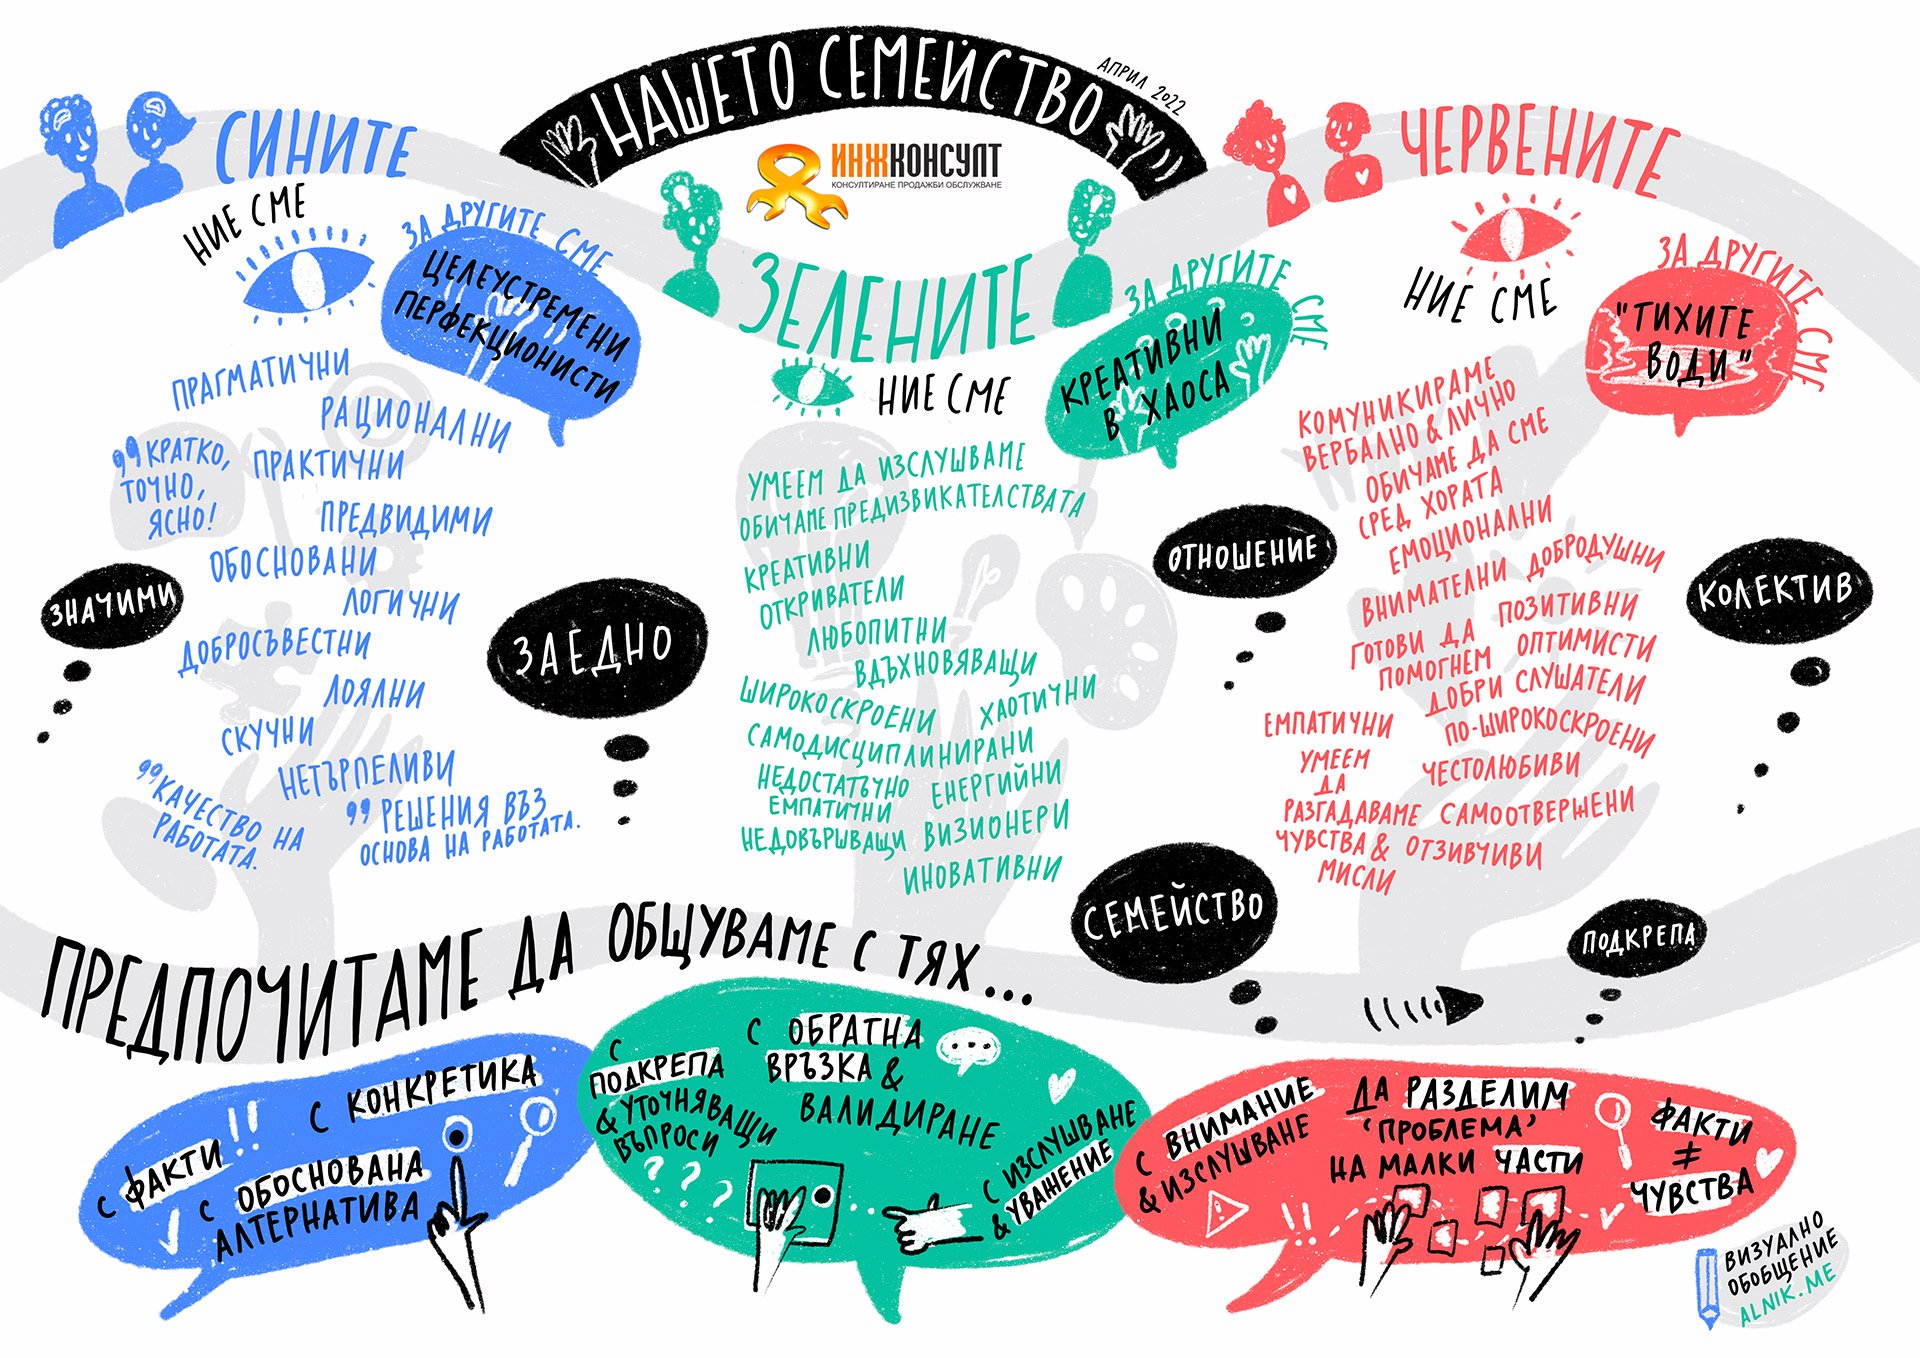 НАШЕТО СЕМЕЙСТВО
АПРИЛ 2022
ИНЖКОНСУЛТ
КОНСУЛТИРАНЕ ПРОДАЖБИ ОБСЛУЖВАНЕ
СИНИТЕ
НИЕ СМЕ
ЗА ДРУГИТЕ СМЕ
ЦЕЛЕУСТРЕМЕНИ
ПЕРФЕКЦИОНИСТИ
ПРАГМАТИЧНИ
РАЦИОНАЛНИ
"КРАТКО,
ТОЧНО,
ЯСНО!
ПРАКТИЧНИ
ПРЕДВИДИМИ
ОБОСНОВАНИ
ЛОГИЧНИ
ДОБРОСЪВЕСТНИ
ЛОЯЛНИ
СКУЧНИ
НЕТЪРПЕЛИВИ
"КАЧЕСТВО НА
РАБОТАТА.
"РЕШЕНИЯ ВЪЗ
ОСНОВА НА РАБОТАТА.
ЗНАЧИМИ
ЗАЕДНО
ЗЕЛЕНИТЕ
НИЕ СМЕ
ЗА ДРУГИТЕ СМЕ
КРЕАТИВНИ
В ХАОСА
УМЕЕМ ДА ИЗСЛУШВАМЕ
ОБИЧАМЕ ПРЕДИЗВИКАТЕЛСТВАТА
КРЕАТИВНИ
ОТКРИВАТЕЛИ
ЛЮБОПИТНИ
ВДЪХНОВЯВАЩИ
ШИРОКОСКРОЕНИ
ХАОТИЧНИ
САМОДИСЦИПЛИНИРАНИ
НЕДОСТАТЪЧНО
ЕМПАТИЧНИ
ЕНЕРГИЙНИ
НЕДОВЪРШВАЩИ
ВИЗИОНЕРИ
ИНОВАТИВНИ
ЧЕРВЕНИТЕ
НИЕ СМЕ
ЗА ДРУГИТЕ СМЕ
"ТИХИТЕ
ВОДИ"
КОМУНИКИРАМЕ
ВЕРБАЛНО & ЛИЧНО
ОБИЧАМЕ ДА СМЕ
СРЕД ХОРАТА
ЕМОЦИОНАЛНИ
ВНИМАТЕЛНИ
ДОБРОДУШНИ
ПОЗИТИВНИ
ГОТОВИ ДА
ПОМОГНЕМ
ОПТИМИСТИ
ДОБРИ СЛУШАТЕЛИ
ЕМПАТИЧНИ
ПО-ШИРОКОСКРОЕНИ
УМЕЕМ
ДА
РАЗГАДАВАМЕ
ЧУВСТВА &
МИСЛИ
ЧЕСТОЛЮБИВИ
САМООТВЕРЖЕНИ
ОТЗИВЧИВИ
ОТНОШЕНИЕ
КОЛЕКТИВ
СЕМЕЙСТВО
ПОДКРЕПА
ПРЕДПОЧИТАМЕ ДА ОБЩУВАМЕ С ТЯХ...
С ФАКТИ!!
С КОНКРЕТИКА
С ОБОСНОВАНА
АЛТЕРНАТИВА
С
ПОДКРЕПА
& УТОЧНЯВАЩИ
ВЪПРОСИ
???
С ОБРАТНА
ВРЪЗКА &
ВАЛИДИРАНЕ
С ИЗСЛУШВАНЕ
& УВАЖЕНИЕ
С ВНИМАНИЕ
& ИЗСЛУШВАНЕ
!!
ДА РАЗДЕЛИМ
'ПРОБЛЕМА'
НА МАЛКИ ЧАСТИ
ФАКТИ
≠
ЧУВСТВА
ВИЗУАЛНО
ОБОБЩЕНИЕ
ALNIK.ME